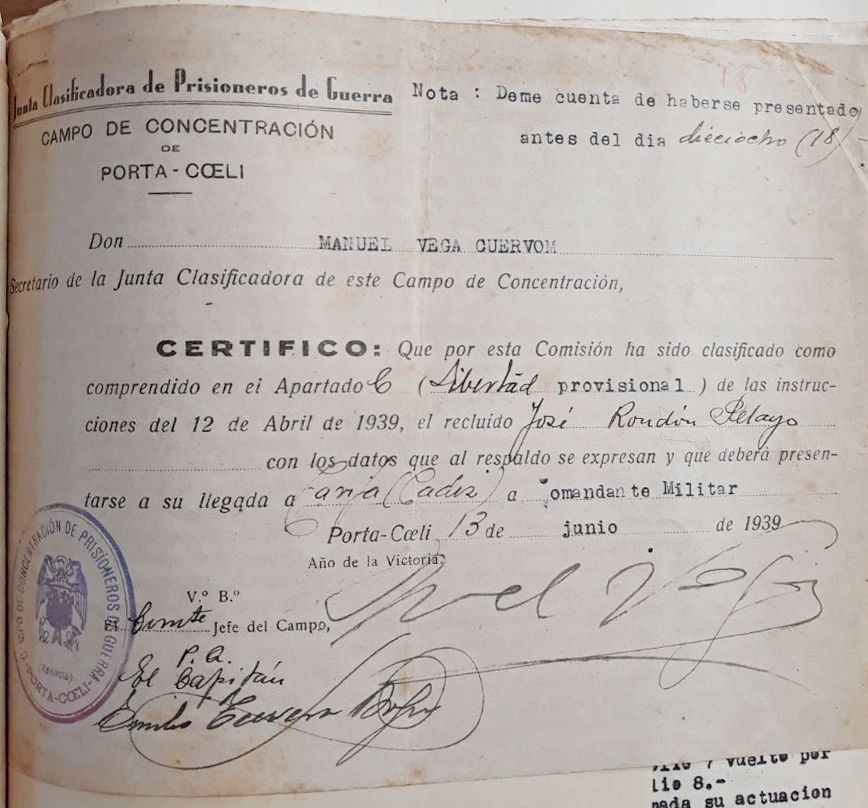 Junta Clasificadora de Prisioneros de Guerra
CAMPO DE CONCENTRACIÓN
DE
PORTA-CŒLI
18
Nota : Deme cuenta de haberse presentado
antes del dia dieciocho (18) -
Don MANUEL VEGA CUERVOM
Secretario de la Junta Clasificadora de este Campo de Concentración,
CERTIFICO: Que por esta Comisión ha sido clasificado como
comprendido en el Apartado C (Libertad provisional) de las instruc-
ciones del 12 de Abril de 1939, el recluído José Rondón Pelayo
con los datos que al respaldo se expresan y que deberá presen-
tarse a su llegada a (Cadiz) a omandante Militar
Porta-Cœli 13 de junio de 1939
Año de la Victoria.
Vega
V.º B.º
El Jefe del Campo,
P.A.
El Capitán
Emilio
CAMPO DE CONCENTRACIÓN DE PRISIONEROS DE GUERRA
(Valencia)
-PORTA-CŒLI-
vuelto por
lio 8.-
nada su actuacion